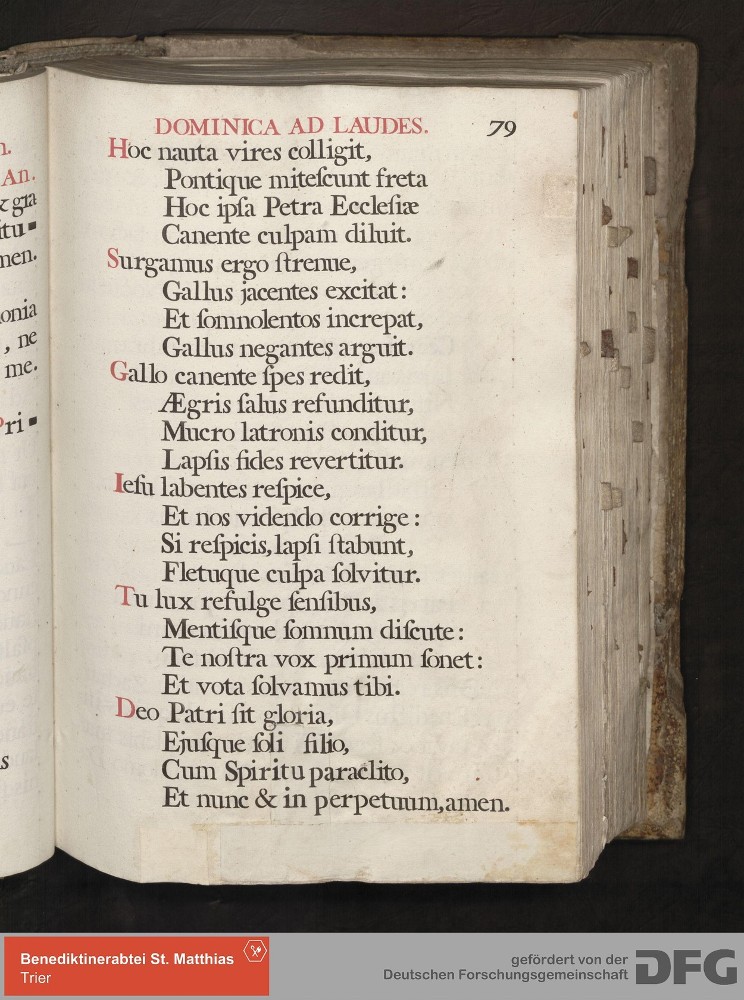 DOMINICA AD LAUDES. 79
Hoc nauta vires colligit,
Pontique miteſcunt freta
Hoc ipſa Petra Eccleſiæ
Canente culpam diluit.
Surgamus ergo ſtrenue,
Gallus jacentes excitat:
Et ſomnolentos increpat,
Gallus negantes arguit.
Gallo canente ſpes redit,
Ægris ſalus refunditur,
Mucro latronis conditur,
Lapſis fides revertitur.
Ieſu labentes reſpice,
Et nos videndo corrige:
Si reſpicis, lapſi ſtabunt,
Fletuque culpa ſolvitur.
Tu lux refulge ſenſibus,
Mentiſque ſomnum diſcute:
Te noſtra vox primum ſonet:
Et vota ſolvamus tibi.
Deo Patri ſit gloria,
Ejuſque ſoli filio,
Cum Spiritu paraclito,
Et nunc & in perpetuum, amen.
An.
& gra
itu-
men.
onia
, ne
me.
Pri-
s
Benediktinerabtei St. Matthias
Trier
gefördert von der
Deutschen Forschungsgemeinschaft
DFG